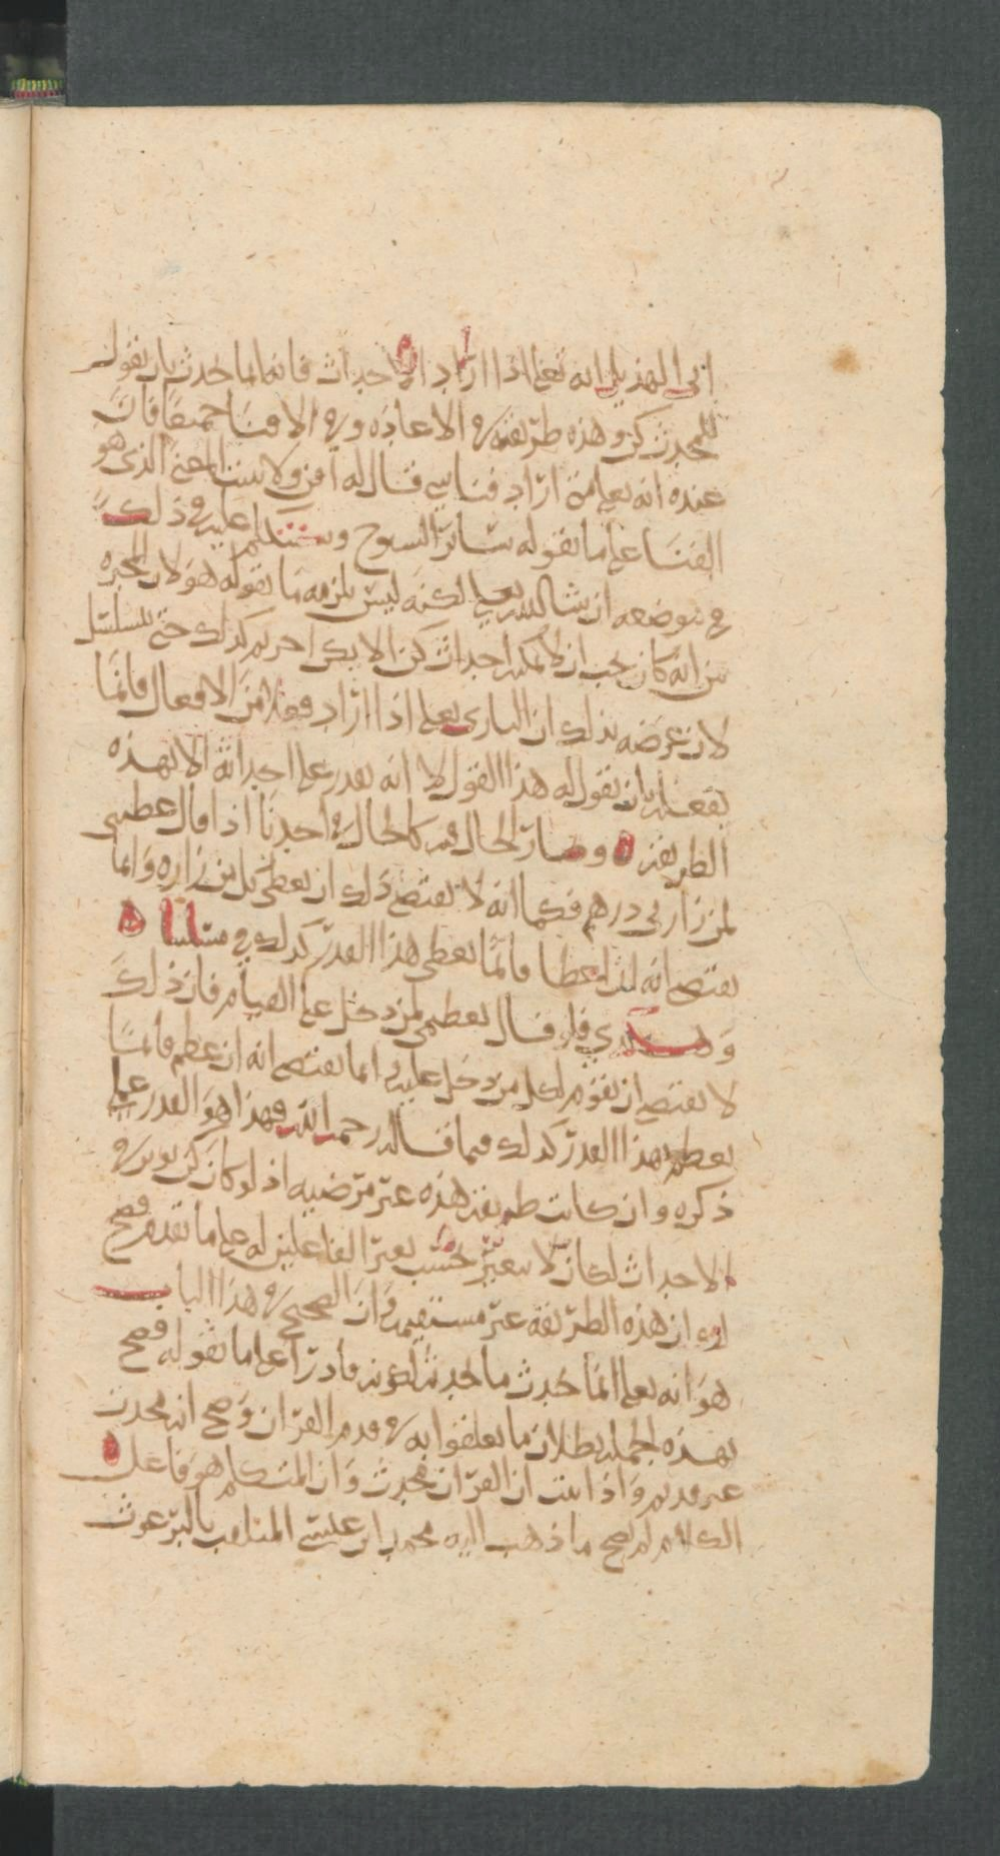 ابي الهذيل انه تعلى اذا اراد الاحداث فانه انما يحدث بان يقول
للمحدث كن وهذه طريقته في الاعادة وفي الافنا جميعا فان
عنده انه تعلى متى اراد فنا شي قال له افن ولا يثبت المعنى الذي هو
الفنا على ما يقوله سائر الشيوخ وسنتكلم عليه في ذلك
في موضعه ان شا الله تعلى لكنه ليس يلزمه ما يقوله هولا المجبره
من انه كان يجب ان لا يمكنه احداث كن الا بكن اخر ثم كذلك حتى يتسلسل
لان غرضه بذلك ان الباري تعلى اذا اراد فعلا من الافعال فانما
يفعله بان يقول له هذا القول لا انه يقدر على احداثه الا بهذه
الطريقه ه وصار الحال فيه كالحال في احدنا اذا قال عطيتي
لمن زارني درهم فكما انه لا يقتضي ذلك ان يعطي كل من زاره وانما
يقتضي انه ان اعطا فانما يعطي هذا القدر كذلك في مسلتنا ه
وهكذي فلو قال تعظيمي لمن دخل علي القيام فان ذلك
لا يقتضي ان يقوم لكل من دخل عليه انما يقتضي انه ان عظم فانما
يعظم بهذا القدر كذلك فيما قاله رحمه الله فهذا هو القدر على
ذكره وان كانت طريقته هذه غير مرضيه اذ لو كان كن يوثر في
الاحداث لكان لا يتغير بحسب تغير الفاعلين له على ما تقدم فصح
لك ان هذه الطريقة غير مستقيمه وان الصحيح في هذا الباب
هو انه تعلى انما يحدث ما يحدثه لكونه قادرا على ما نقوله فصح
بهذه الجمله بطلان ما تعلقوا به في قدم القران وصح انه محدث
غير قديم واذا ثبت ان القران محدث وان المتكلم هو فاعل ه
الكلام لم يصح ما ذهب اليه محمد ابن عيسى الملقب بالبرغوث